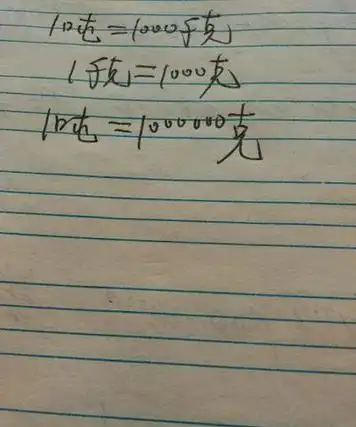 1吨=1000千克
1千克=1000克
1吨=1000000克